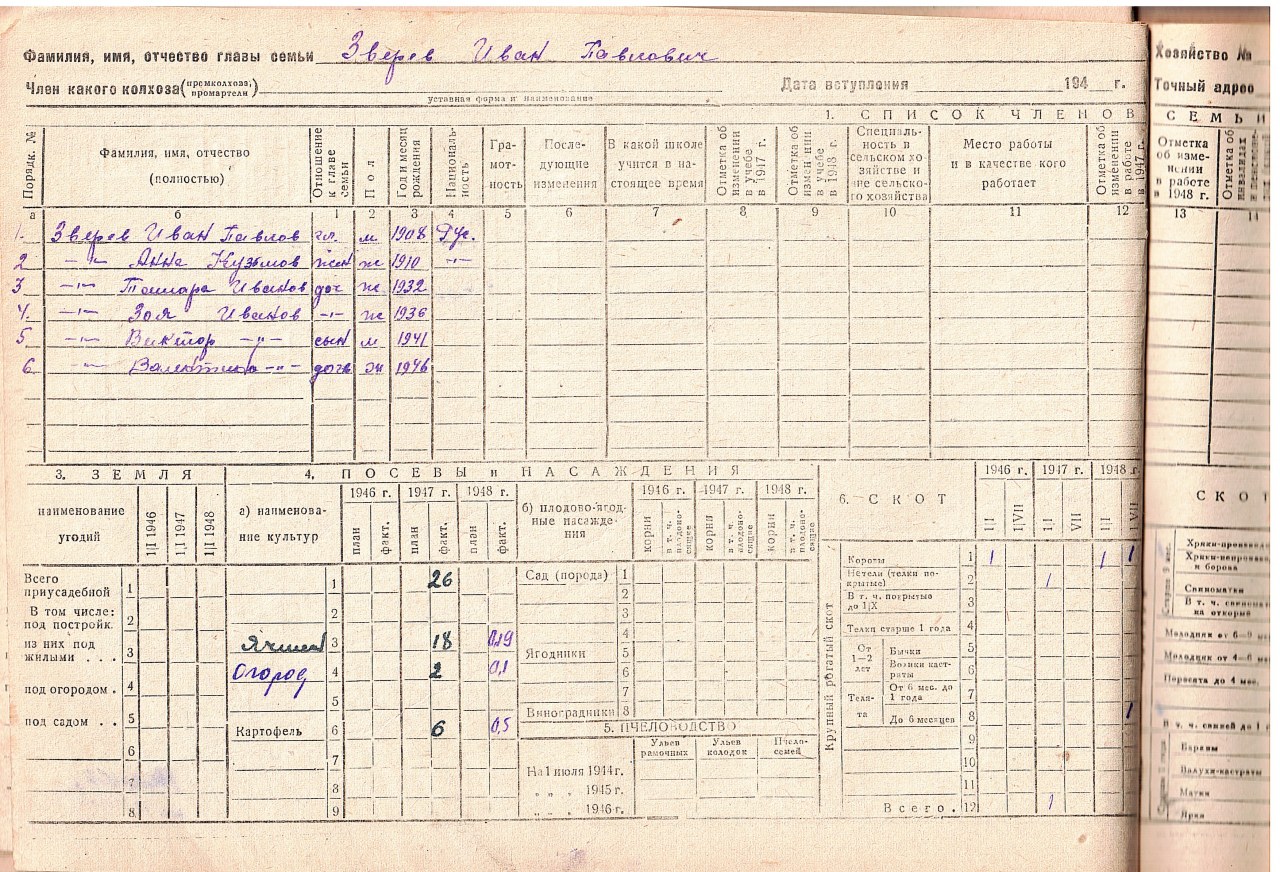 Фамилия, имя, отчество главы семьи Зверев Иван Павлович
Член какого колхоза (промколхоза, промартели)
уставная форма и наименование
Дата вступления 194 г.
Хозяйство №
Точный адрес
1. СПИСОК ЧЛЕНОВ СЕМЬИ
Порядк. № Фамилия, имя, отчество (полностью) Отношение к главе семьи Пол Год и месяц рождения Националь-ность Гра-мот-ность После-дующие изменения В какой школе учится в на-стоящее время Отметка об изменении в учебе в 1947 г. Отметка об изменении в учебе в 1948 г. Специаль-ность в сельском хо зяйстве и вне сельско-го хозяйства Место работы и в качестве кого работает Отметка об изменении в работе в 1947 г. Отметка об изме-нении в работе в 1948 г. Отметка об инвалидах
а б 1 2 3 4 5 6 7 8 9 10 11 12 13 14
1. Зверев Иван Павлов гл. м 1908 Рус.
2 -"- Анна Кузьмов жен ж 1910 -"-
3 -"- Тамара Иванов доч ж 1932
4. -"- Зоя Иванов -"- ж 1936
5 -"- Виктор -"- сын м 1941
6 -"- Валентина -"- дочь ж 1946
3. ЗЕМЛЯ
наименование угодий 1|I 1946 1|I 1947 1|I 1948
Всего приусадебной 1
В том числе: под постройк. 2
из них под жилыми . . . 3
под огородом . 4
под садом . . 5
6
7
8
4. ПОСЕВЫ и НАСАЖДЕНИЯ
1946 г. 1947 г. 1948 г.
а) наименова-ние культур план факт. план факт. план факт.
1 26
2
Ячмен 3 18 0,19
Огород 4 2 0,1
5
Картофель 6 6 0,5
7
8
9
1946 г. 1947 г. 1948 г.
б) плодово-ягод-ные насажде-ния корни в т. ч. плодоно-сящие корни в т. ч. плодоно-сящие корни в т. ч. плодоно-сящие
Сад (порода) 1
2
3
4
Ягодники 5
6
7
Виноградники 8
5. ПЧЕЛОВОДСТВО
Ульев рамочных Ульев колодок Пчело-семей
На 1 июля 1944 г.
" " " 1945 г.
" " " 1946 г.
6. СКОТ
1946 г. 1947 г. 1948 г.
1|I 1|VII 1|I VII 1|I 1|VII
Крупный рогатый скот
Коровы 1 1 1 1
Нетели (телки по-крытые) 2 1
В т. ч. покрытые до 1|IX 3
Телки старше 1 года 4
От 1—2 лет Бычки 5
Волики каст-раты 6
Теля-та От 6 мес. до 1 года 7
До 6 месяцев 8 1
9
10
11
Всего. 12 1
СКОТ
Хряки-производ
Хряки-непроизво и борова
Свиноматки
В т. ч. свиномат на откорме
Молодняк от 6—9 м
Молодняк от 4—6 м
Поросята до 4 мес.
В т. ч. свиней до 1 г
Бараны
Валухи-кастраты
Матки
Ярки